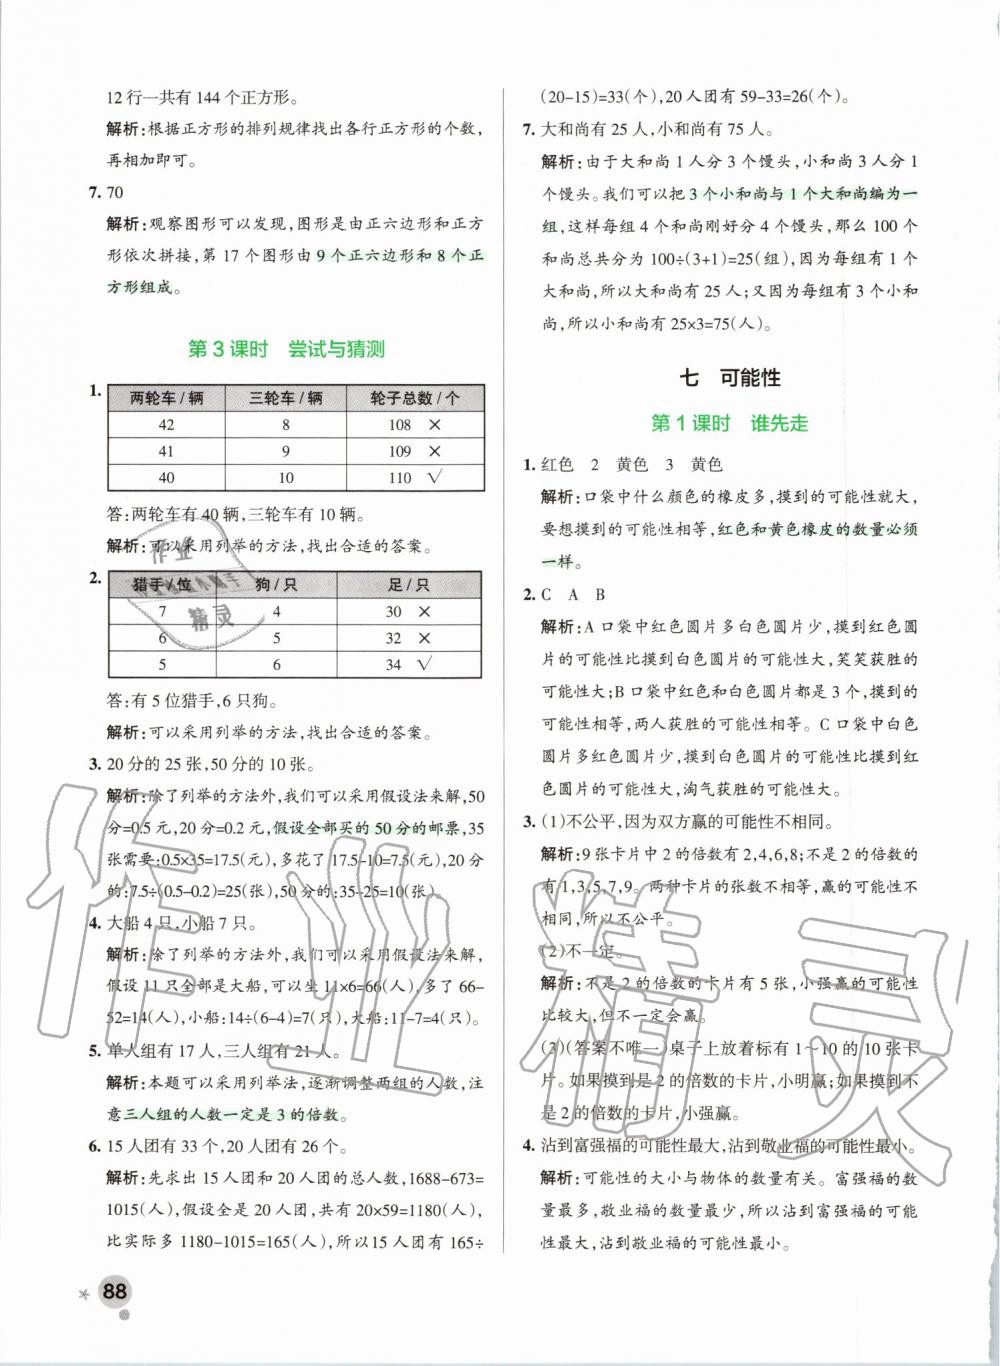 12 行一共有 144 个正方形。
解析:根据正方形的排列规律找出各行正方形的个数,
再相加即可。
7. 70
解析:观察图形可以发现,图形是由正六边形和正方
形依次拼接,第 17 个图形由 9 个正六边形和 8 个正
方形组成。
第 3 课时 尝试与猜测
1.
两轮车/辆 三轮车/辆 轮子总数/个
42 8 108 ×
41 9 109 ×
40 10 110 √
答:两轮车有 40 辆,三轮车有 10 辆。
解析:可以采用列举的方法,找出合适的答案。
2.
猎手/位 狗/只 足/只
7 4 30 ×
6 5 32 ×
5 6 34 √
答:有 5 位猎手,6 只狗。
解析:可以采用列举的方法,找出合适的答案。
3. 20 分的 25 张,50 分的 10 张。
解析:除了列举的方法外,我们可以采用假设法来解,50
分=0.5 元,20 分=0.2 元,假设全部买的 50 分的邮票,35
张需要:0.5×35=17.5(元),多花了 17.5-10=7.5(元),20 分
的:7.5÷(0.5-0.2)=25(张),50 分的:35-25=10(张)。
4. 大船 4 只,小船 7 只。
解析:除了列举的方法外,我们可以采用假设法来解,
假设 11 只全部是大船,可以坐 11×6=66(人),多了 66-
52=14(人),小船:14÷(6-4)=7(只),大船:11-7=4(只)。
5. 单人组有 17 人,三人组有 21 人。
解析:本题可以采用列举法,逐渐调整两组的人数,注
意三人组的人数一定是 3 的倍数。
6. 15 人团有 33 个,20 人团有 26 个。
解析:先求出 15 人团和 20 人团的总人数,1688-673=
1015(人),假设全是 20 人团,共有 20×59=1180(人),
比实际多 1180-1015=165(人),所以15 人团有 165÷
(20-15)=33(个),20 人团有 59-33=26(个)。
7. 大和尚有 25 人,小和尚有 75 人。
解析:由于大和尚 1 人分 3 个馒头,小和尚 3 人分 1
个馒头。我们可以把 3 个小和尚与 1 个大和尚编为一
组,这样每组 4 个和尚刚好分 4 个馒头,那么 100 个
和尚总共分为 100÷(3+1)=25(组),因为每组有 1 个
大和尚,所以大和尚有 25 人;又因为每组有 3 个小和
尚,所以小和尚有 25×3=75(人)。
七 可能性
第 1 课时 谁先走
1. 红色 2 黄色 3 黄色
解析:口袋中什么颜色的橡皮多,摸到的可能性就大,
要想摸到的可能性相等,红色和黄色橡皮的数量必须
一样。
2. C A B
解析:A 口袋中红色圆片多白色圆片少,摸到红色圆
片的可能性比摸到白色圆片的可能性大,笑笑获胜的
可能性大;B 口袋中红色和白色圆片都是 3 个,摸到的
可能性相等,两人获胜的可能性相等。C 口袋中白色
圆片多红色圆片少,摸到白色圆片的可能性比摸到红
色圆片的可能性大,淘气获胜的可能性大。
3. (1)不公平,因为双方赢的可能性不相同。
解析:9 张卡片中 2 的倍数有 2,4,6,8;不是 2 的倍数的
有 1,3,5,7,9。两种卡片的张数不相等,赢的可能性不
相同,所以不公平。
(2)不一定。
解析:不是 2 的倍数的卡片有 5 张,小强赢的可能性
比较大,但不一定会赢。
(3)(答案不唯一)桌子上放着标有 1~10 的 10 张卡
片。如果摸到是 2 的倍数的卡片,小明赢;如果摸到不
是 2 的倍数的卡片,小强赢。
4. 沾到富强福的可能性最大,沾到敬业福的可能性最小。
解析:可能性的大小与物体的数量有关。富强福的数
量最多,敬业福的数量最少,所以沾到富强福的可能
性最大,沾到敬业福的可能性最小。
88
作业精灵
作业
精灵